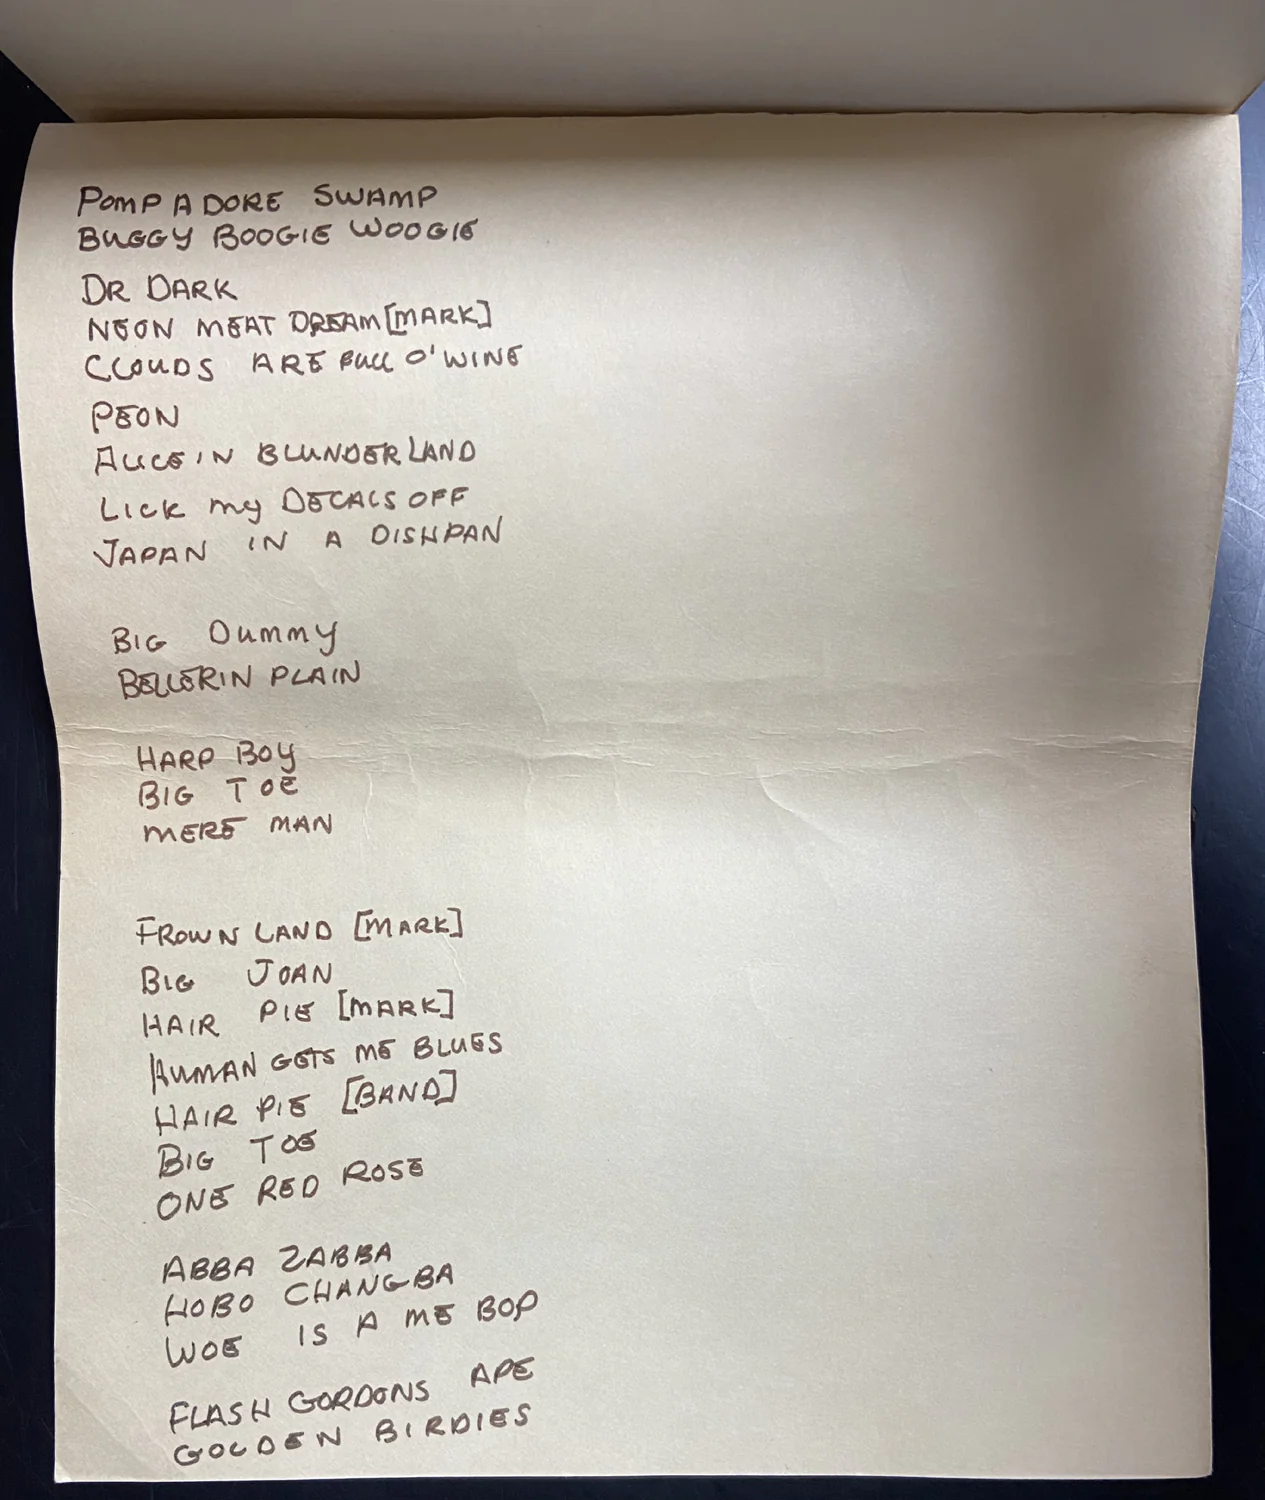 POMPADORE SWAMP
BUGGY BOOGIE WOOGIE
DR DARK
NEON MEAT DREAM [MARK]
CLOUDS ARE FULL O' WINE
PEON
ALICE IN BLUNDERLAND
LICK MY DECALS OFF
JAPAN IN A DISHPAN
BIG DUMMY
BELLERIN PLAIN
HARP BOY
BIG TOE
MERE MAN
FROWN LAND [MARK]
BIG JOAN
HAIR PIE [MARK]
HUMAN GETS ME BLUES
HAIR PIE [BAND]
BIG TOE
ONE RED ROSE
ABBA ZABBA
HOBO CHANG BA
WOE IS A ME BOP
FLASH GORDONS APE
GOLDEN BIRDIES